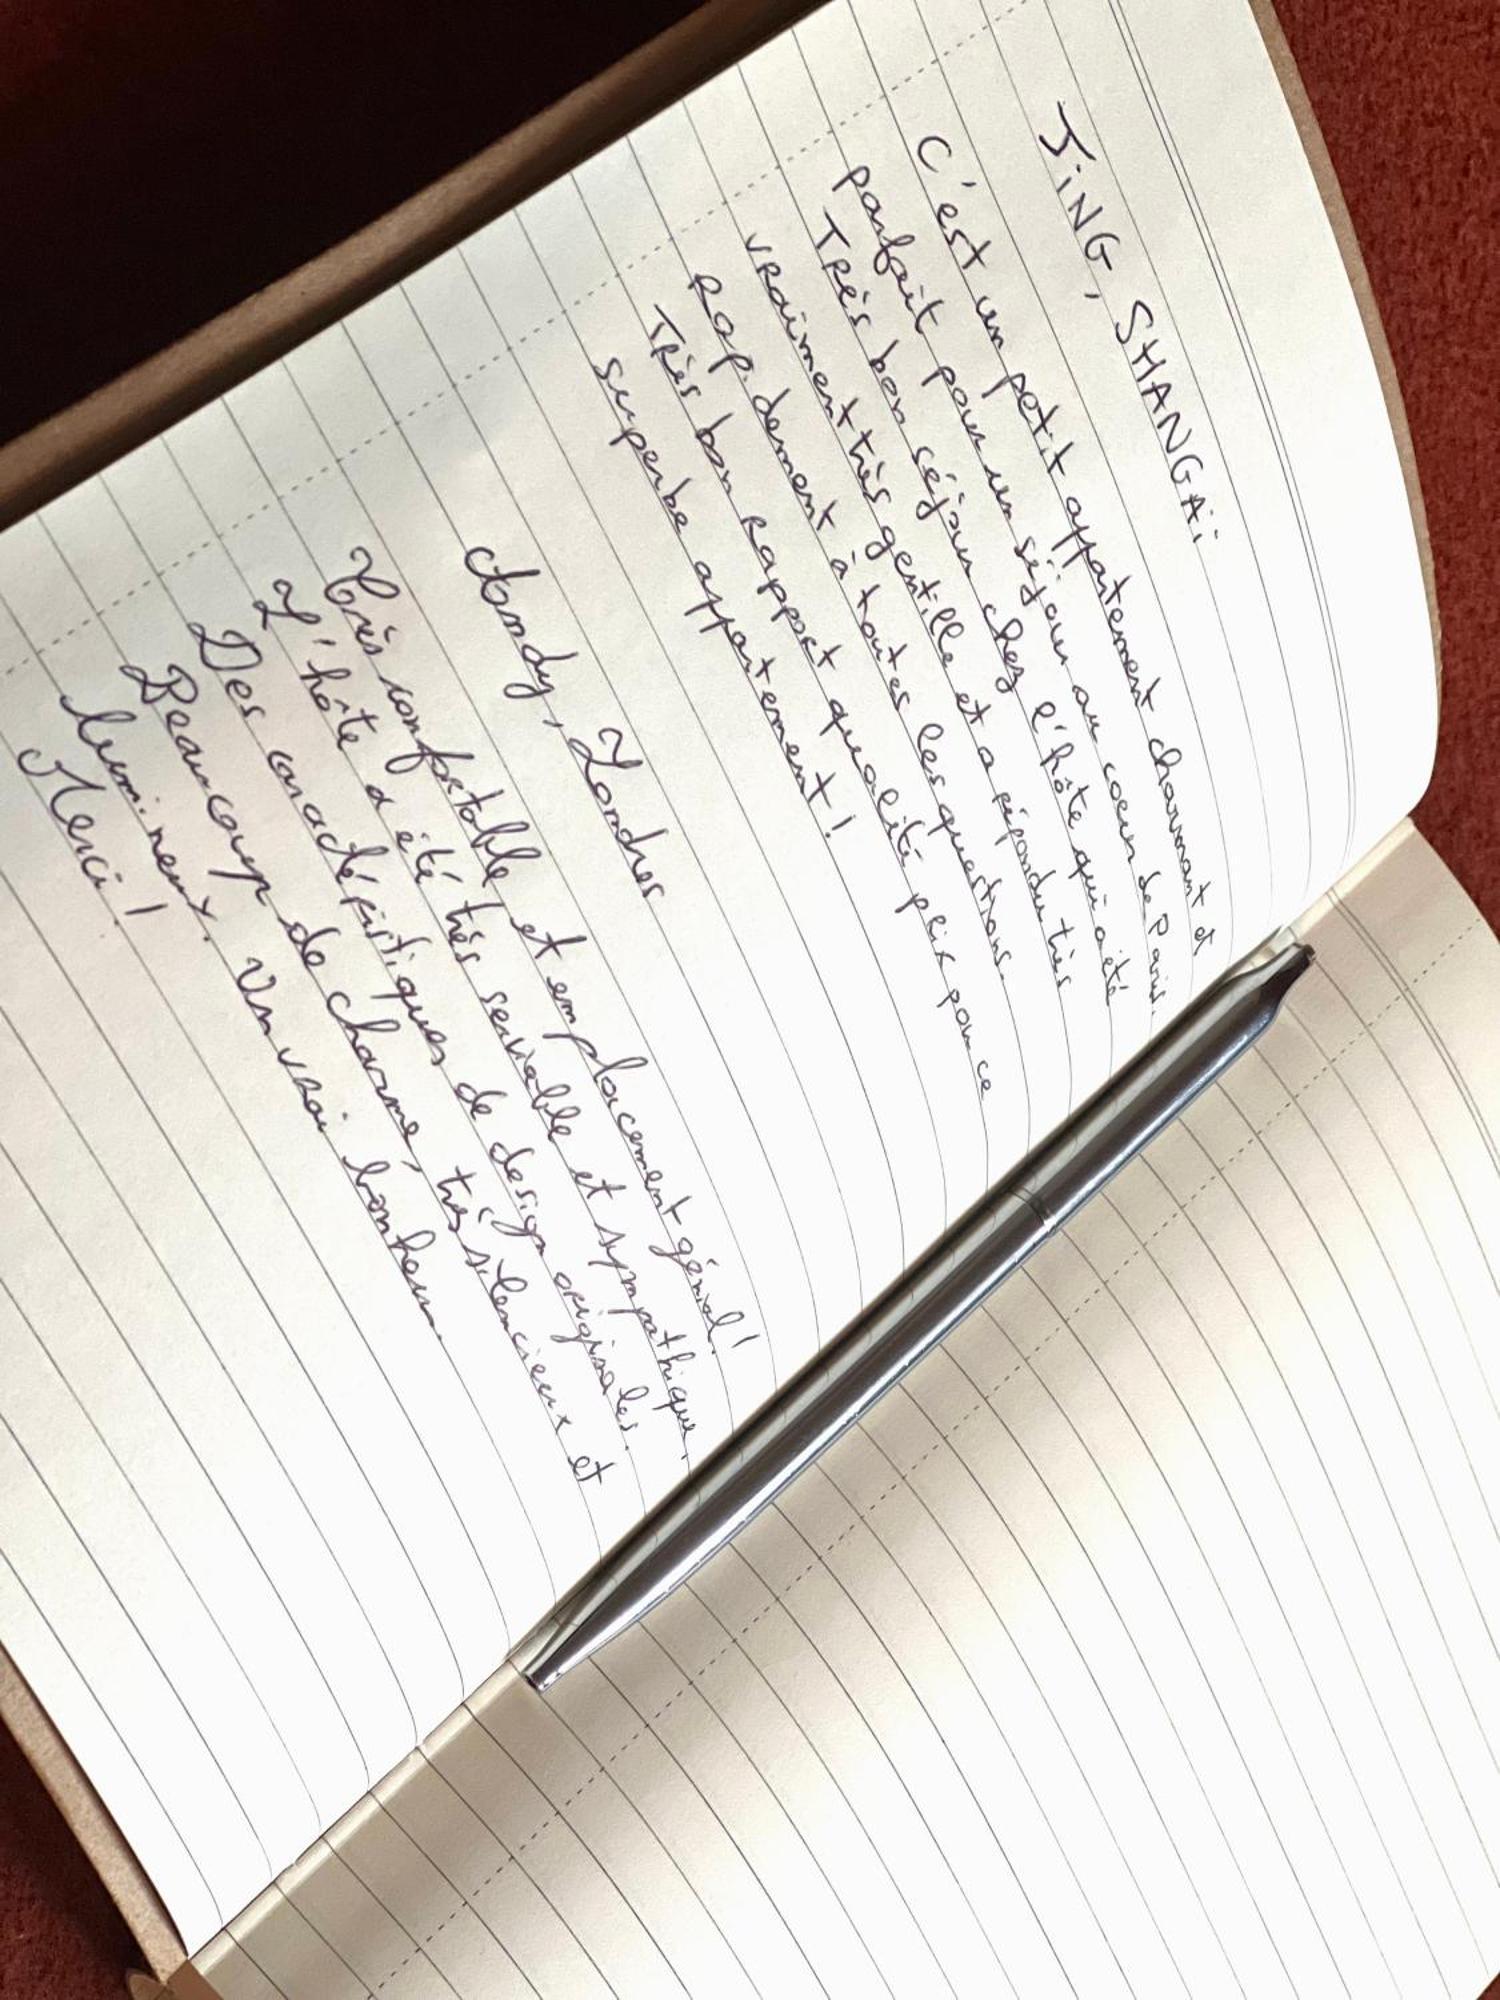 JiNG, SHANGAï
C'est un petit appartement charmant et
parfait pour un séjour au coeur de Paris.
Très bon séjour chez l'hôte qui a été
vraiment très gentille et a répondu très
Rapidement à toutes les questions.
Très bon rapport qualité prix pour ce
superbe appartement !
Andy, Londres
Très confortable et emplacement génial !
L'hôte a été très serviable et sympathique.
Des caractéristiques de design originales.
Beaucoup de charme, très silencieux et
lumineux. Un vrai bonheur.
Merci !